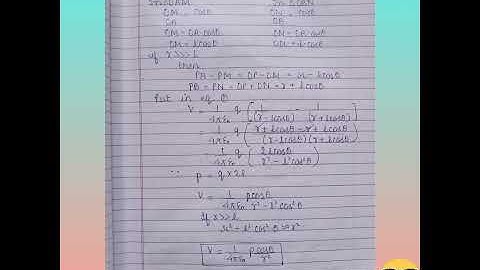 In △OAM In △OBN
OM = cosθ ON = cosθ
OA OB
OM = OA cosθ ON = OB cosθ
OM = lcosθ ON = l cosθ
if r>>>l
then
PA = PM = OP - OM = r - lcosθ
PB = PN = OP + ON = r + lcosθ
Put in eq. ①
V = 1/4πε₀ q [ 1/(r - lcosθ) - 1/(r + lcosθ) ]
= 1/4πε₀ q ( r + lcosθ - r + lcosθ / (r - lcosθ)(r + lcosθ) )
= 1/4πε₀ q ( 2lcosθ / r² - l²cos²θ )
∵ p = q × 2l
V = 1/4πε₀ pcosθ / r² - l²cos²θ
if r>>l
r² - l²cos²θ ≈ r²
V = 1/4πε₀ pcosθ / r²